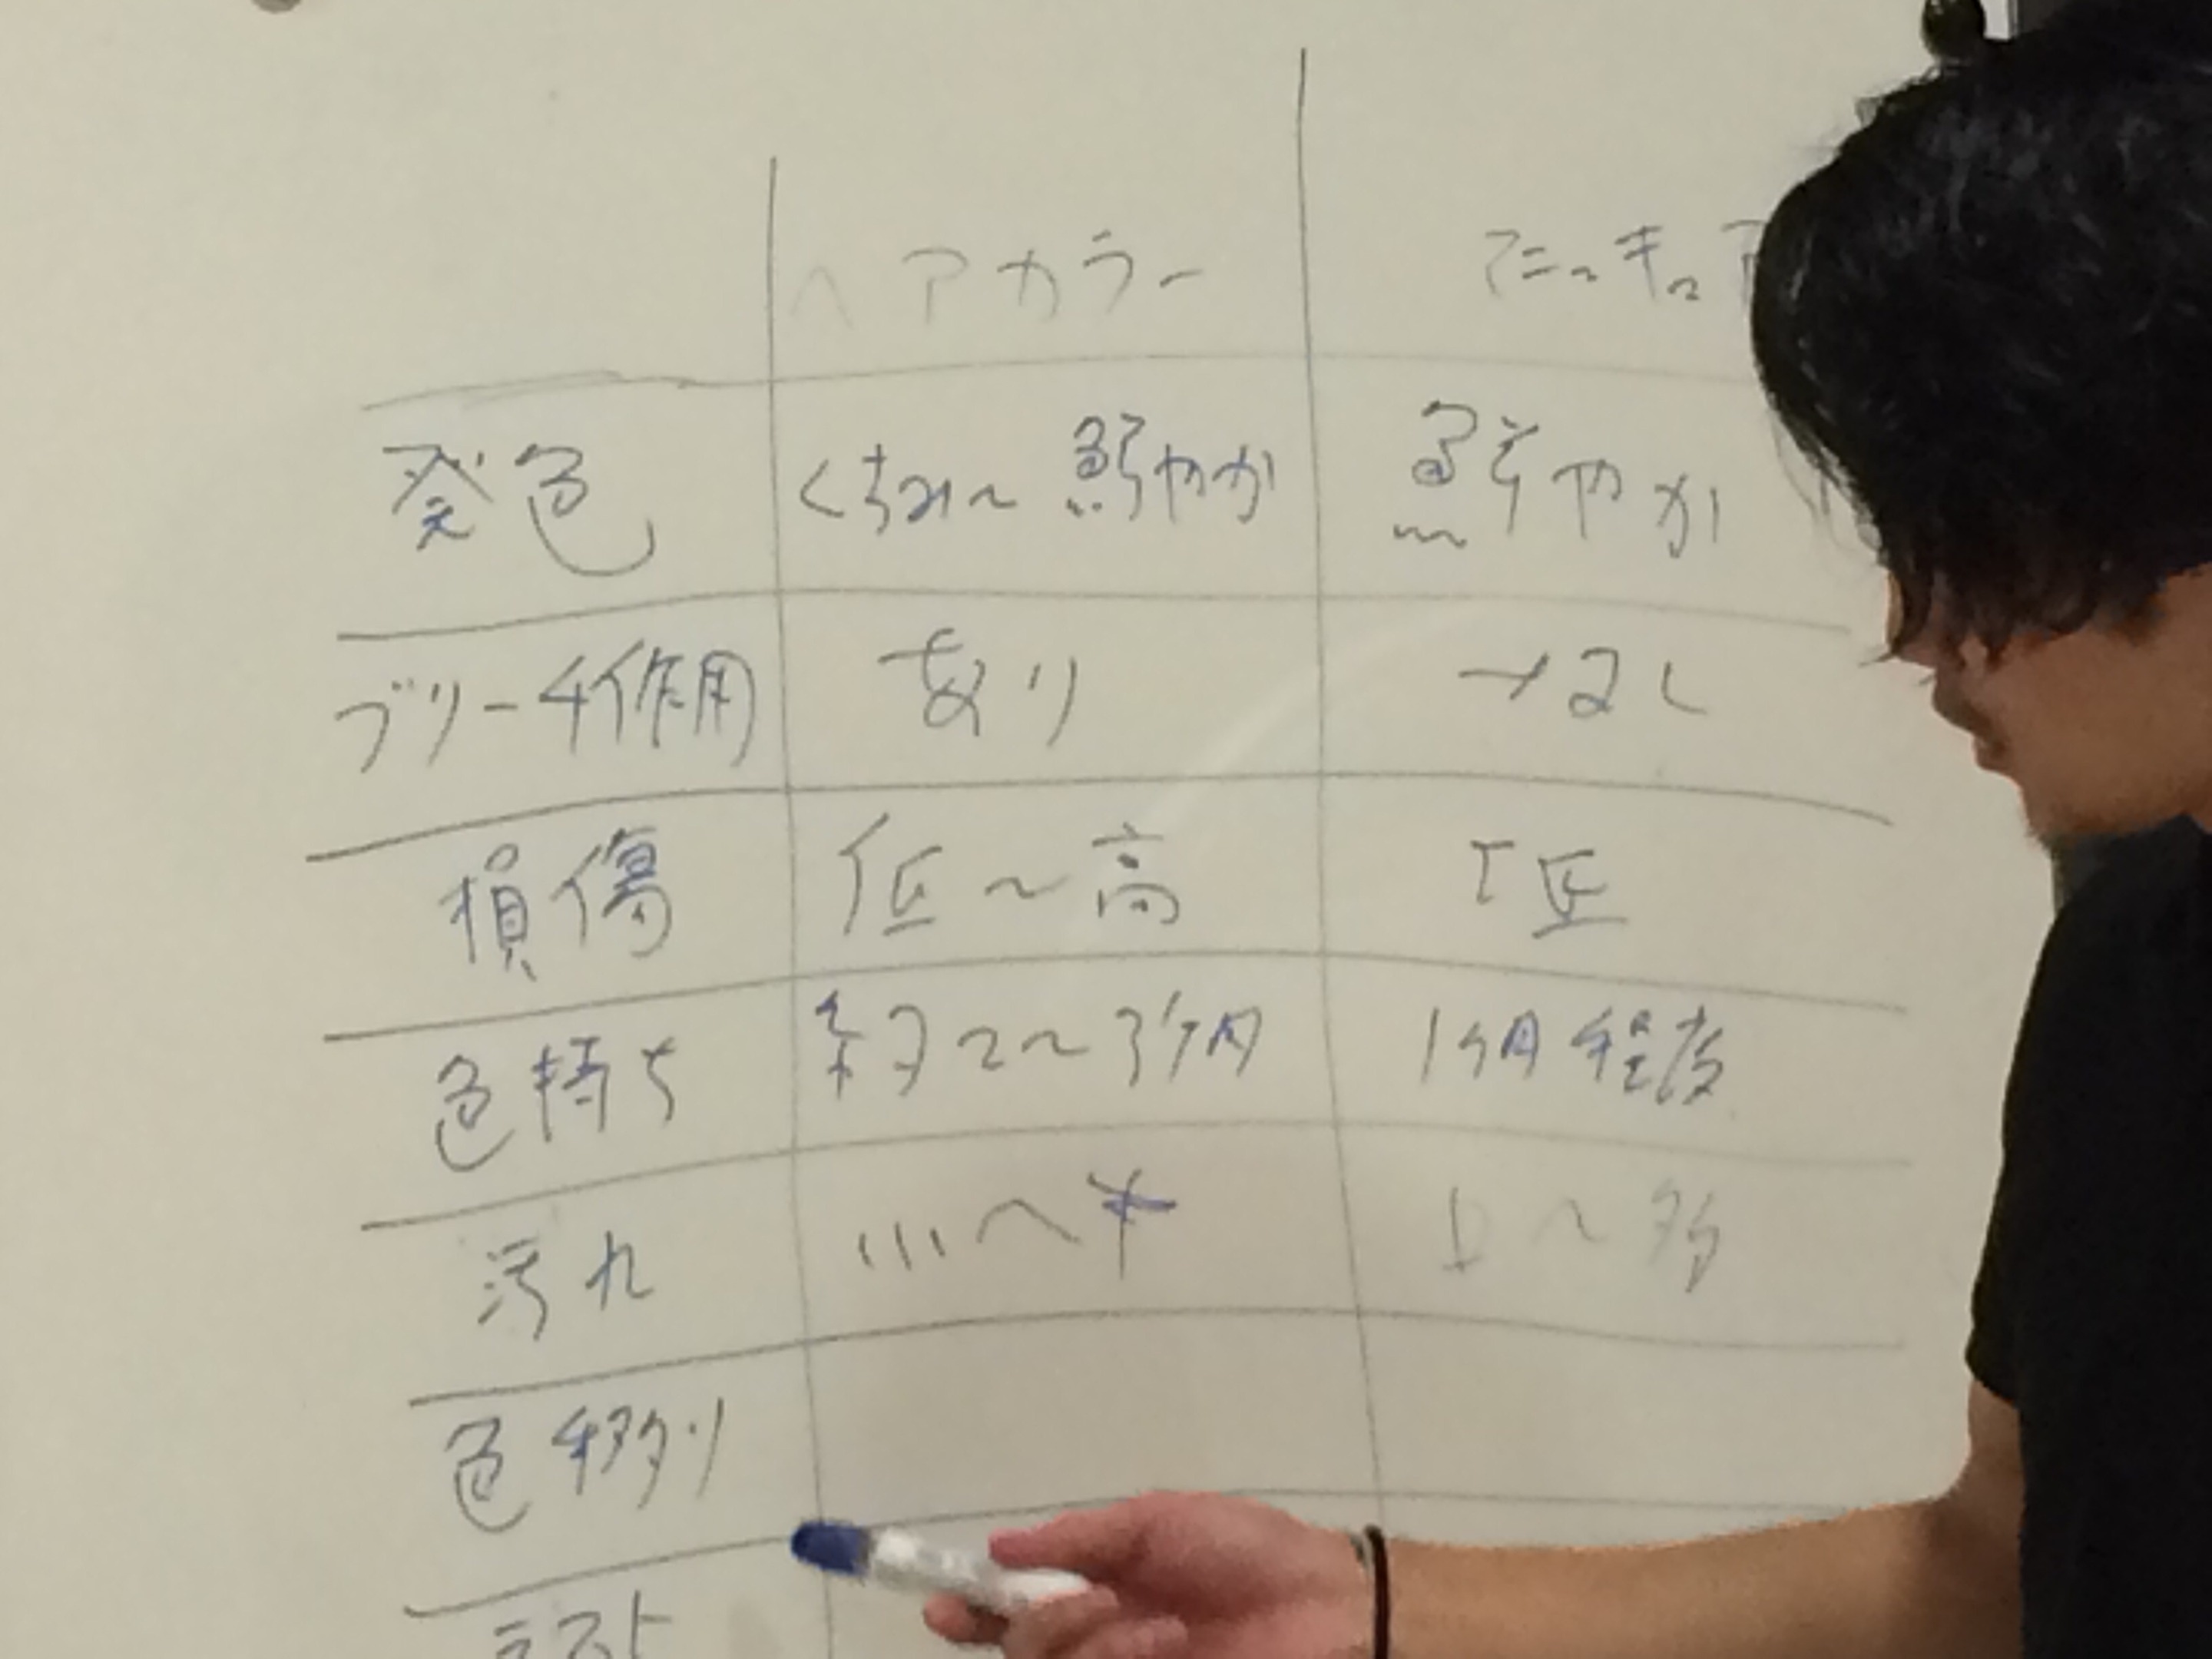 ヘアカラー マニュキュア
発色 くすみ〜鮮やか 鮮やか
ブリーチ作用 あり なし
損傷 低〜高 低
色持ち 約2〜3ヶ月 1ヶ月程度
汚れ 小〜中 〜多
色移り
テスト